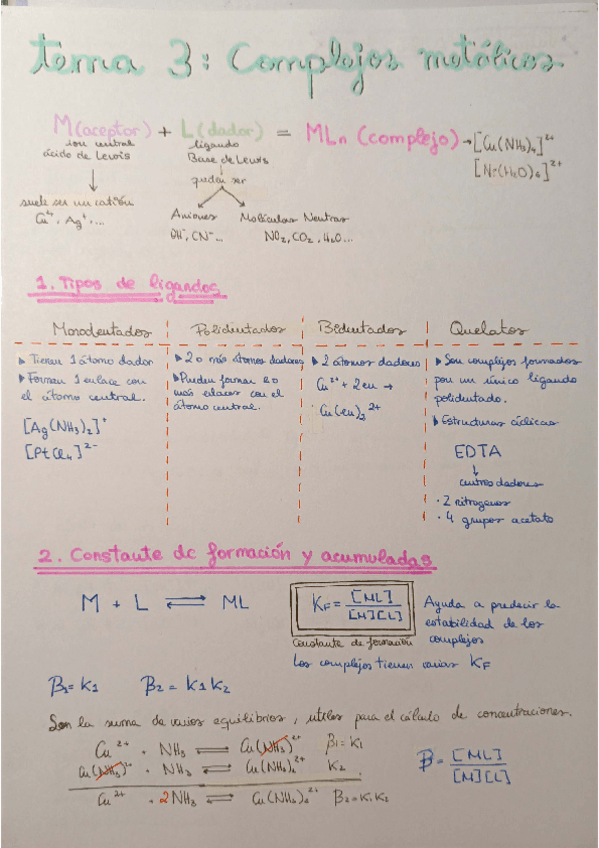 tema 3: Complejos metálicos
M(aceptor) + L(dador) = MLn (complejo) → [Cu(NH₃)₄]²⁺
ion central
ácido de Lewis
ligando
Base de Lewis
[Ni(H₂O)₆]²⁺
pueden ser
suele ser un catión
Cu²⁺, Ag⁺, ...
Aniones
OH⁻, CN⁻...
Moléculas Neutras
NO₂, CO₂, H₂O...
1. Tipos de ligandos
Monodentados
▶ Tienen 1 átomo dador
▶ Forman 1 enlace con
el átomo central.
[Ag(NH₃)₂]⁺
[PtCl₄]²⁻
Polidentados
▶ 2 o más átomos dadores
▶ Pueden formar 2 o
más enlaces con el
átomo central.
Bidentados
▶ 2 átomos dadores
Cu²⁺ + 2en →
Cu(en)₂²⁺
Quelatos
▶ Son complejos formados
por un único ligando
polidentado.
▶ Estructuras cíclicas
EDTA
↓
centros dadores
· 2 nitrogenos
· 4 grupos acetato
2. Constante de formación y acumuladas
M + L ⇌ ML
K_F = [ML] / [M][L]
Constante de formación
Ayuda a predecir la
estabilidad de los
complejos
Los complejos tienen varias K_F
β₁ = K₁ β₂ = K₁K₂
Son la suma de varios equilibrios, utiles para el cálculo de concentraciones.
Cu²⁺ + NH₃ ⇌ Cu(NH₃)²⁺ β₁ = K₁
Cu(NH₃)²⁺ + NH₃ ⇌ Cu(NH₃)₂²⁺ K₂
Cu²⁺ + 2NH₃ ⇌ Cu(NH₃)₂²⁺ β₂ = K₁K₂
β = [ML] / [M][L]